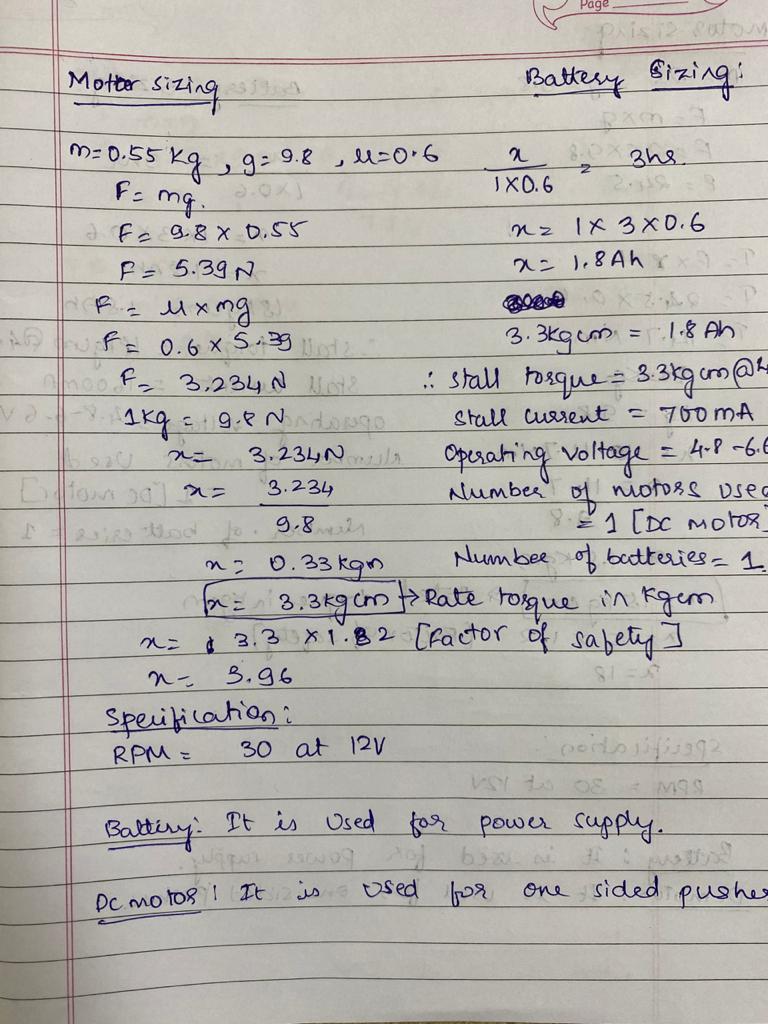 Page
Motor sizing
m=0.55 kg, g=9.8, μ=0.6
F= mg.
F= 9.8 x 0.55
F= 5.39 N
F= μ x mg
F= 0.6 x 5.39
F= 3.234 N
1kg = 9.8 N
x= 3.234N
x= 3.234
9.8
x= 0.33 kgm
x= 3.3kgcm → Rate torque in kgcm
x= 3.3 x 1.2 [Factor of safety]
x= 3.96
Specification:
RPM= 30 at 12V
Battery Sizing:
x
1x0.6
= 3hs.
x= 1 x 3 x 0.6
x= 1.8 Ah
3.3kgcm = 1.8 Ah
∴ Stall torque = 3.3kgcm@
Stall current = 700mA
Operating voltage = 4.8 - 6.6
Number of motors used
= 1 [DC motor]
Number of batteries = 1
Battery: It is used for power supply.
DC motor: It is used for one sided pusher